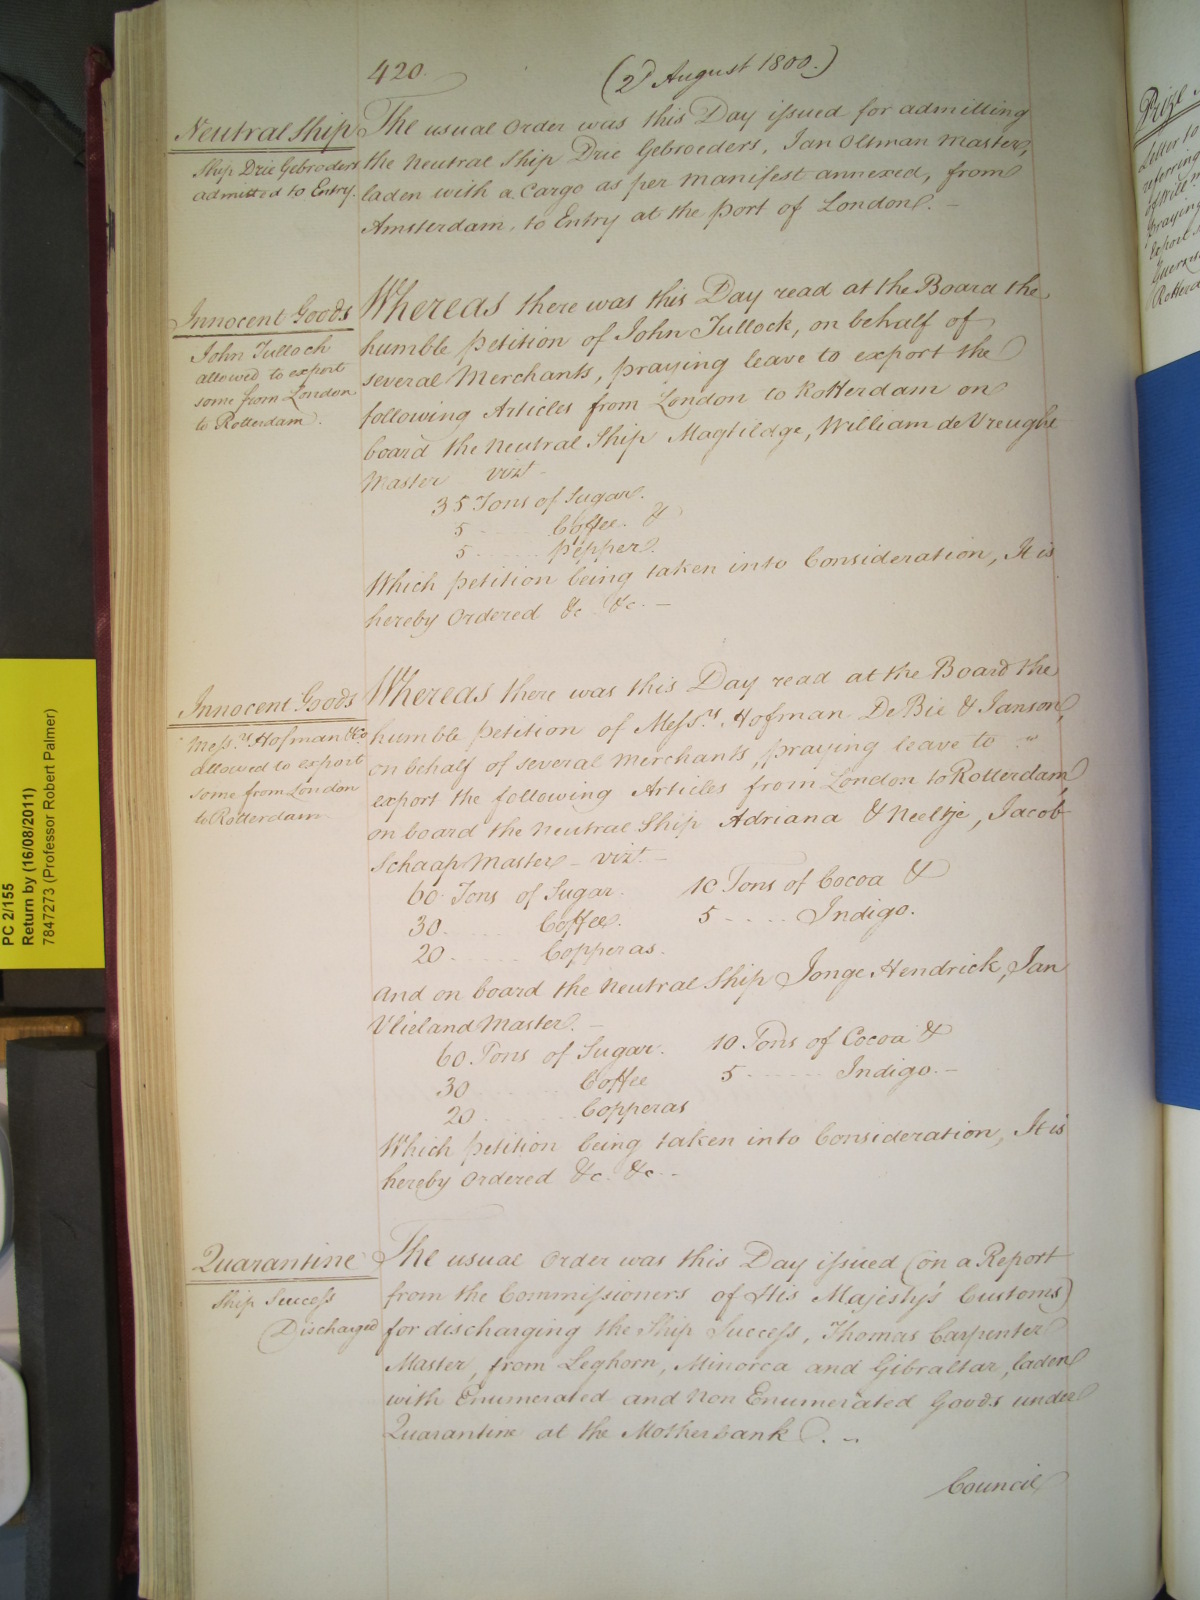 420.
(2d August 1800.)
Neutral Ship
Ship Drie Gebroders
admitted to Entry.
The usual Order was this Day issued for admitting
the Neutral Ship Drie Gebroeders, Jan Oltman Master,
laden with a Cargo as per Manifest annexed, from
Amsterdam, to Entry at the Port of London. –
Innocent Goods
John Tulloch
allowed to export
some from London
to Rotterdam.
Whereas there was this Day read at the Board the
humble Petition of John Tullock, on behalf of
several Merchants, praying leave to export the
following Articles from London to Rotterdam on
board the Neutral Ship Magtildge, William de Vreughe
Master vizt –
35 Tons of Sugar.
5 ...... Coffee. &
5 ...... Pepper.
Which Petition being taken into Consideration, It is
hereby Ordered &c. &c. –
Innocent Goods
Messrs Hofman & Co
allowed to export
some from London
to Rotterdam
Whereas there was this Day read at the Board the
humble Petition of Messrs Hofman De Bie & Janson,
on behalf of several Merchants, praying leave to
export the following Articles from London to Rotterdam,
on board the Neutral Ship Adriana & Neeltje, Jacob
Schaap Master – vizt –
60 Tons of Sugar. 10 Tons of Cocoa &
30 ...... Coffee. 5 ...... Indigo.
20 ...... Copperas.
And on board the Neutral Ship Jonge Hendrick, Jan
Vlieland Master. –
60 Tons of Sugar. 10 Tons of Cocoa &
30 ...... Coffee 5 ...... Indigo. –
20 ...... Copperas
Which Petition being taken into Consideration, It is
hereby Ordered &c. &c. –
Quarantine
Ship Success
Discharged
The usual Order was this Day issued (on a Report
from the Commissioners of His Majesty's Customs)
for discharging the Ship Success, Thomas Carpenter
Master, from Leghorn, Minorca and Gibraltar, laden
with Enumerated and Non Enumerated Goods under
Quarantine at the Motherbank.
Council
PC 2/155
Return by (16/08/2011)
7847273 (Professor Robert Palmer)
Prize
Letter to
referring
praying